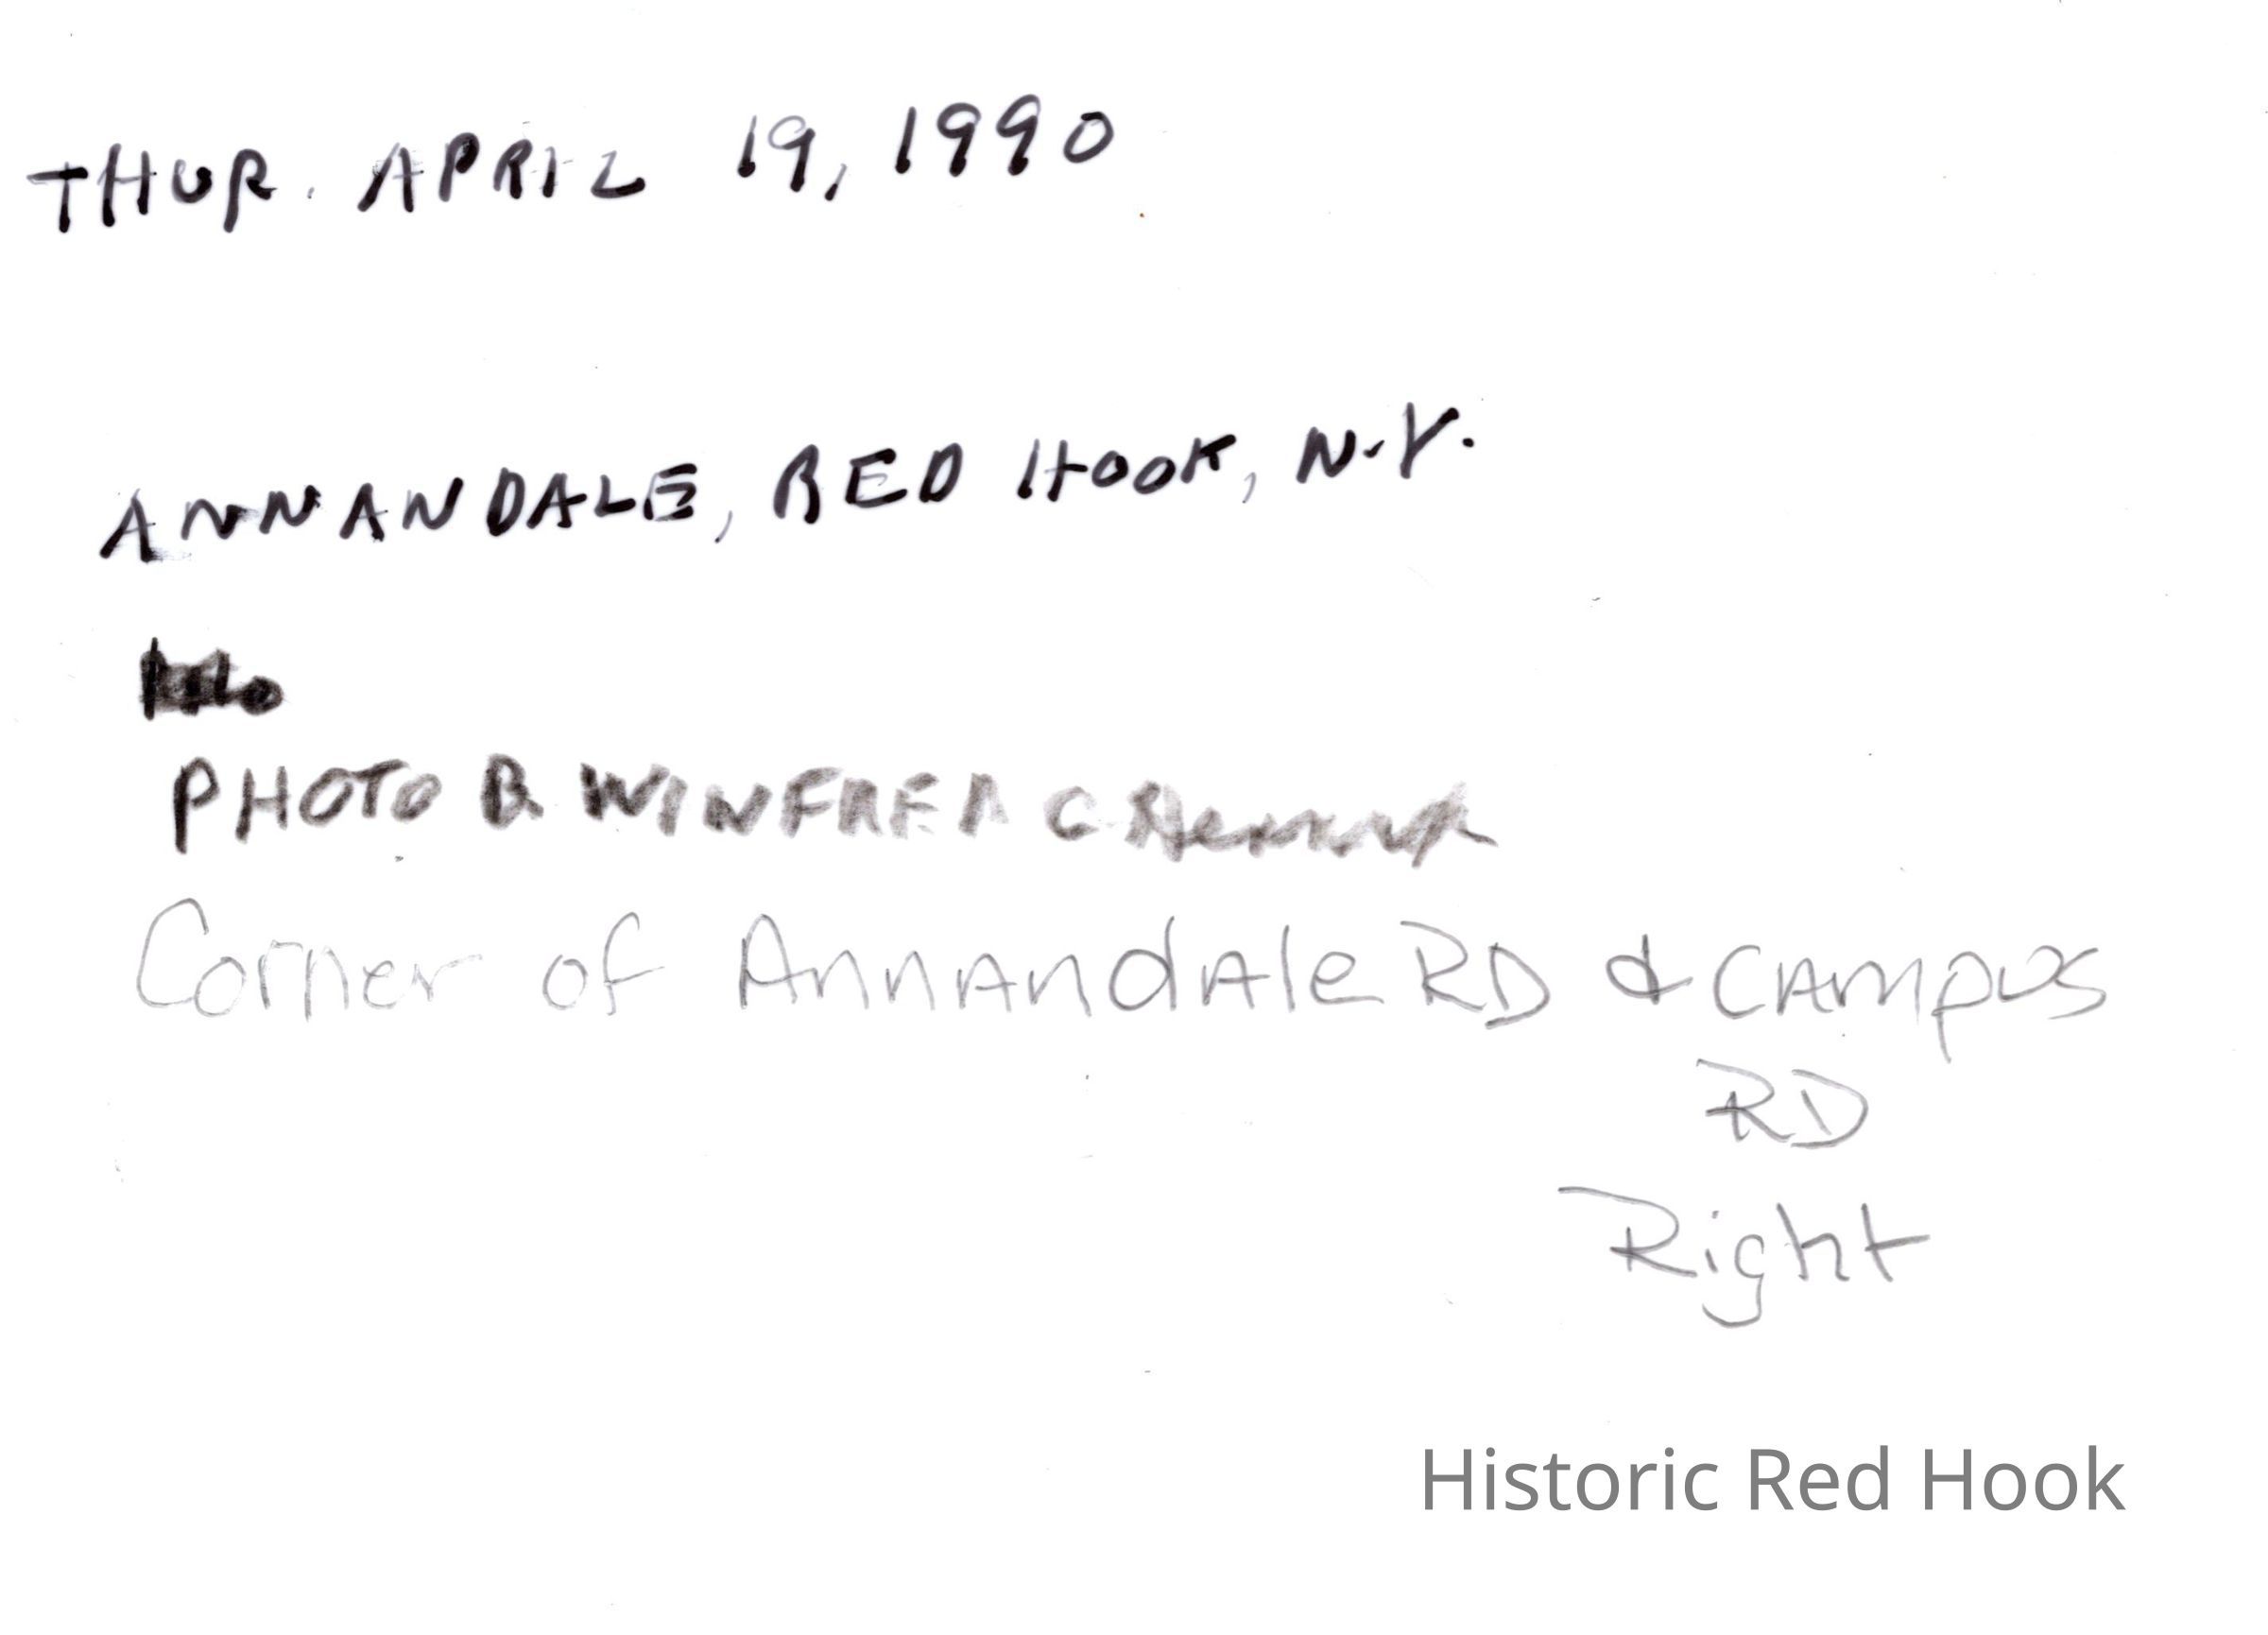 THUR. APRIL 19, 1990
ANNANDALE, RED HOOK, N.Y.
PHOTO B. WINFRED C
Corner of Annandale RD & Campus
RD
Right
Historic Red Hook